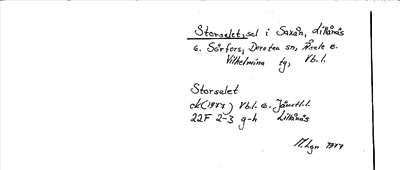 Storselet, sel i Saxån, Lillånäs
o. Sörfors, Dorotea sn, Åsele o.
Vilhelmina tg, Vb. l.
Storselet
ek (1977) Vb. l. o. Jämtl. l.
22F 2-3 g-h Lillånäs
1977